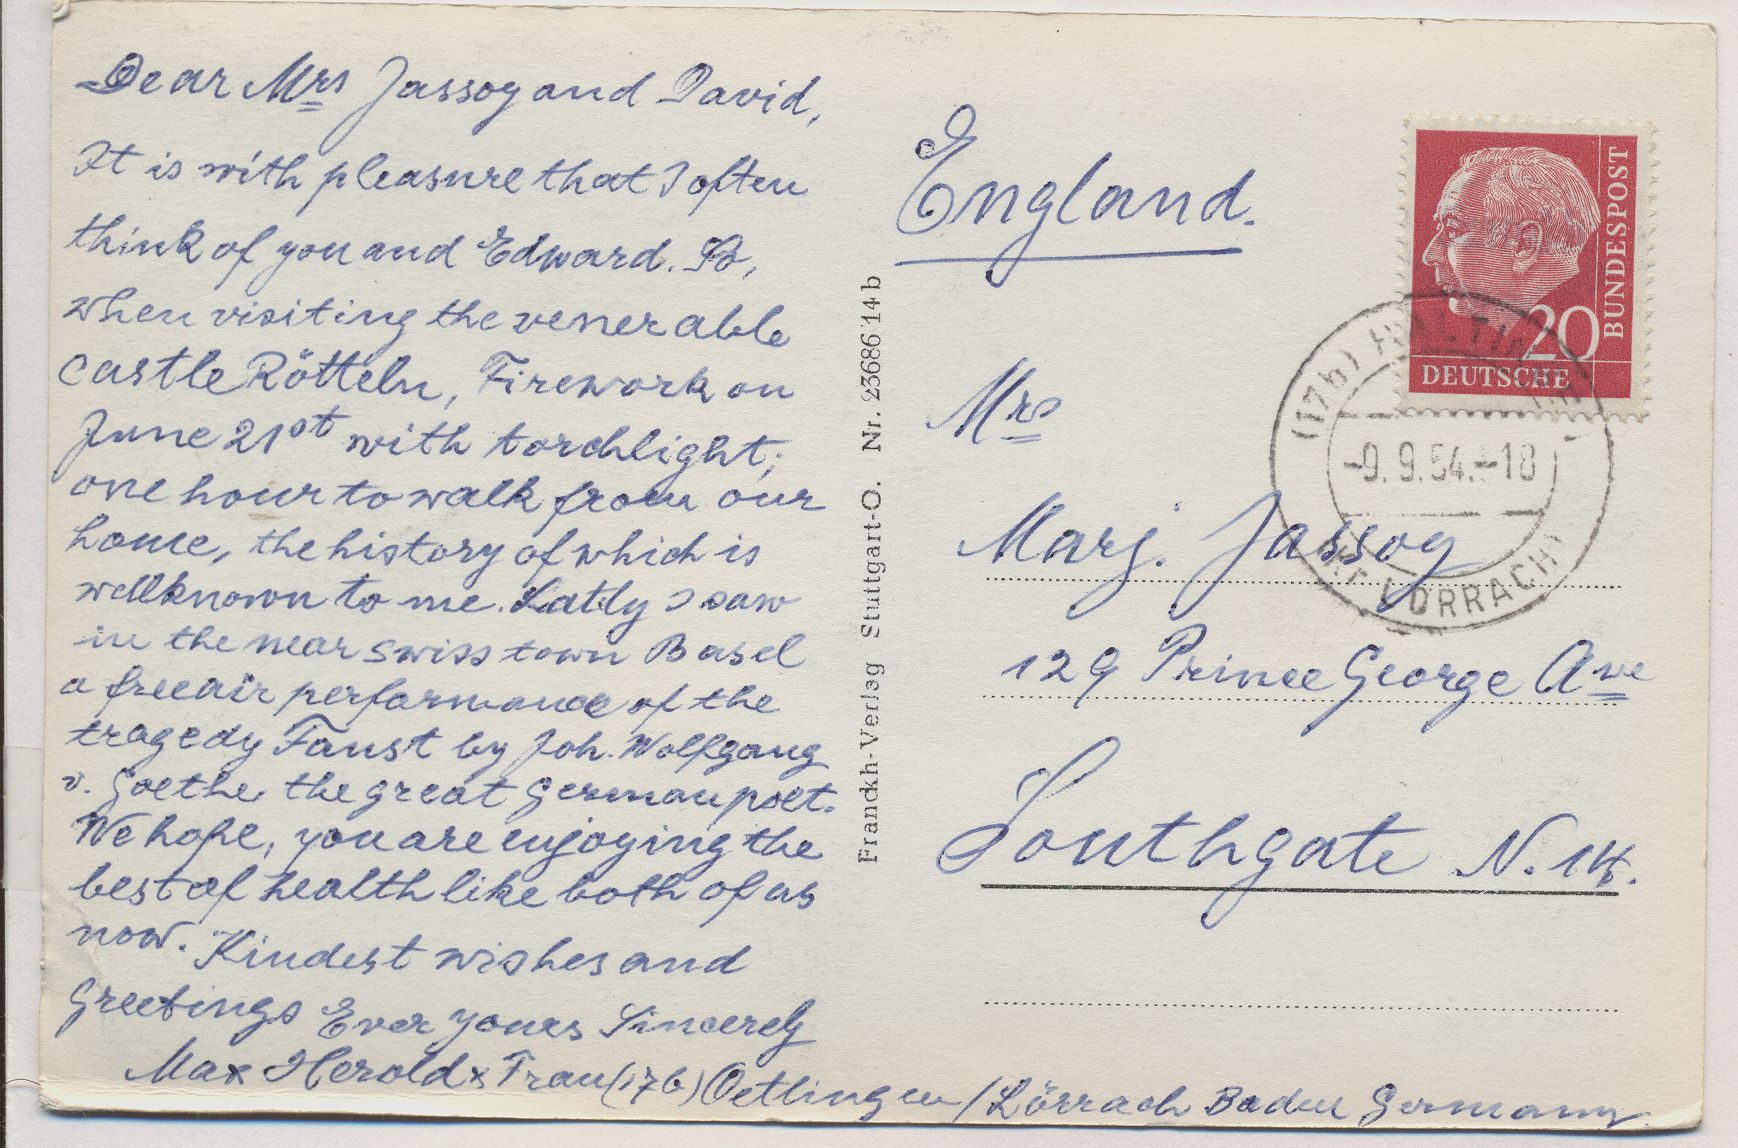 Dear Mrs Jassoy and David,
It is with pleasure that I often
think of you and Edward. So,
when visiting the venerable
castle Rötteln, Firework on
June 21st with torchlight;
one hour to walk from our
home, the history of which is
wellknown to me. Latly I saw
in the near swiss town Basel
a freeair performance of the
tragedy Faust by Joh. Wolfgang
v. Goethe the great German poet.
We hope, you are enjoying the
best of health like both of us
now. Kindest wishes and
Greetings Ever yours Sincerely
Max Herold & Frau (17b) Oetlingen / Lörrach Baden Germany
Franckh-Verlag Stuttgart-O. Nr. 23686 14 b
England.
Mrs
Marj. Jassoy
129 Prince George Ave
Southgate N. 14.
DEUTSCHE
BUNDESPOST
20
(17b) HALTINGEN
-9.9.54.-18
(Kr LÖRRACH)